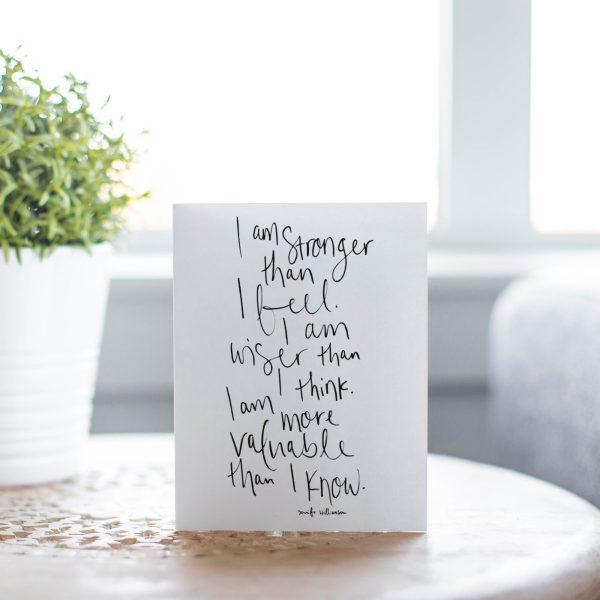 I am stronger
than
I feel.
I am
wiser than
I think.
I am
more
valuable
than I know.